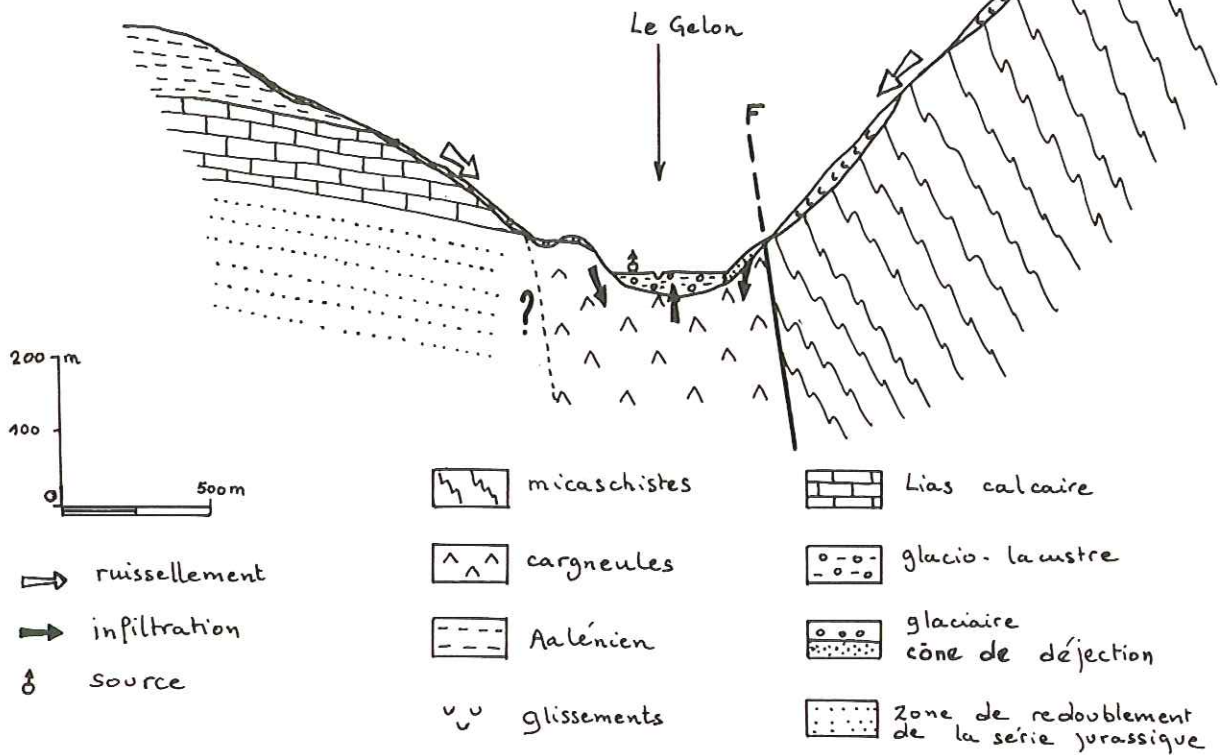 Le Gelon
F
?
200 m
100
0
500m
ruissellement
infiltration
source
micaschistes
cargneules
Aalénien
glissements
Lias calcaire
glacio-lacustre
glaciaire
cône de déjection
zone de redoublement
de la série jurassique